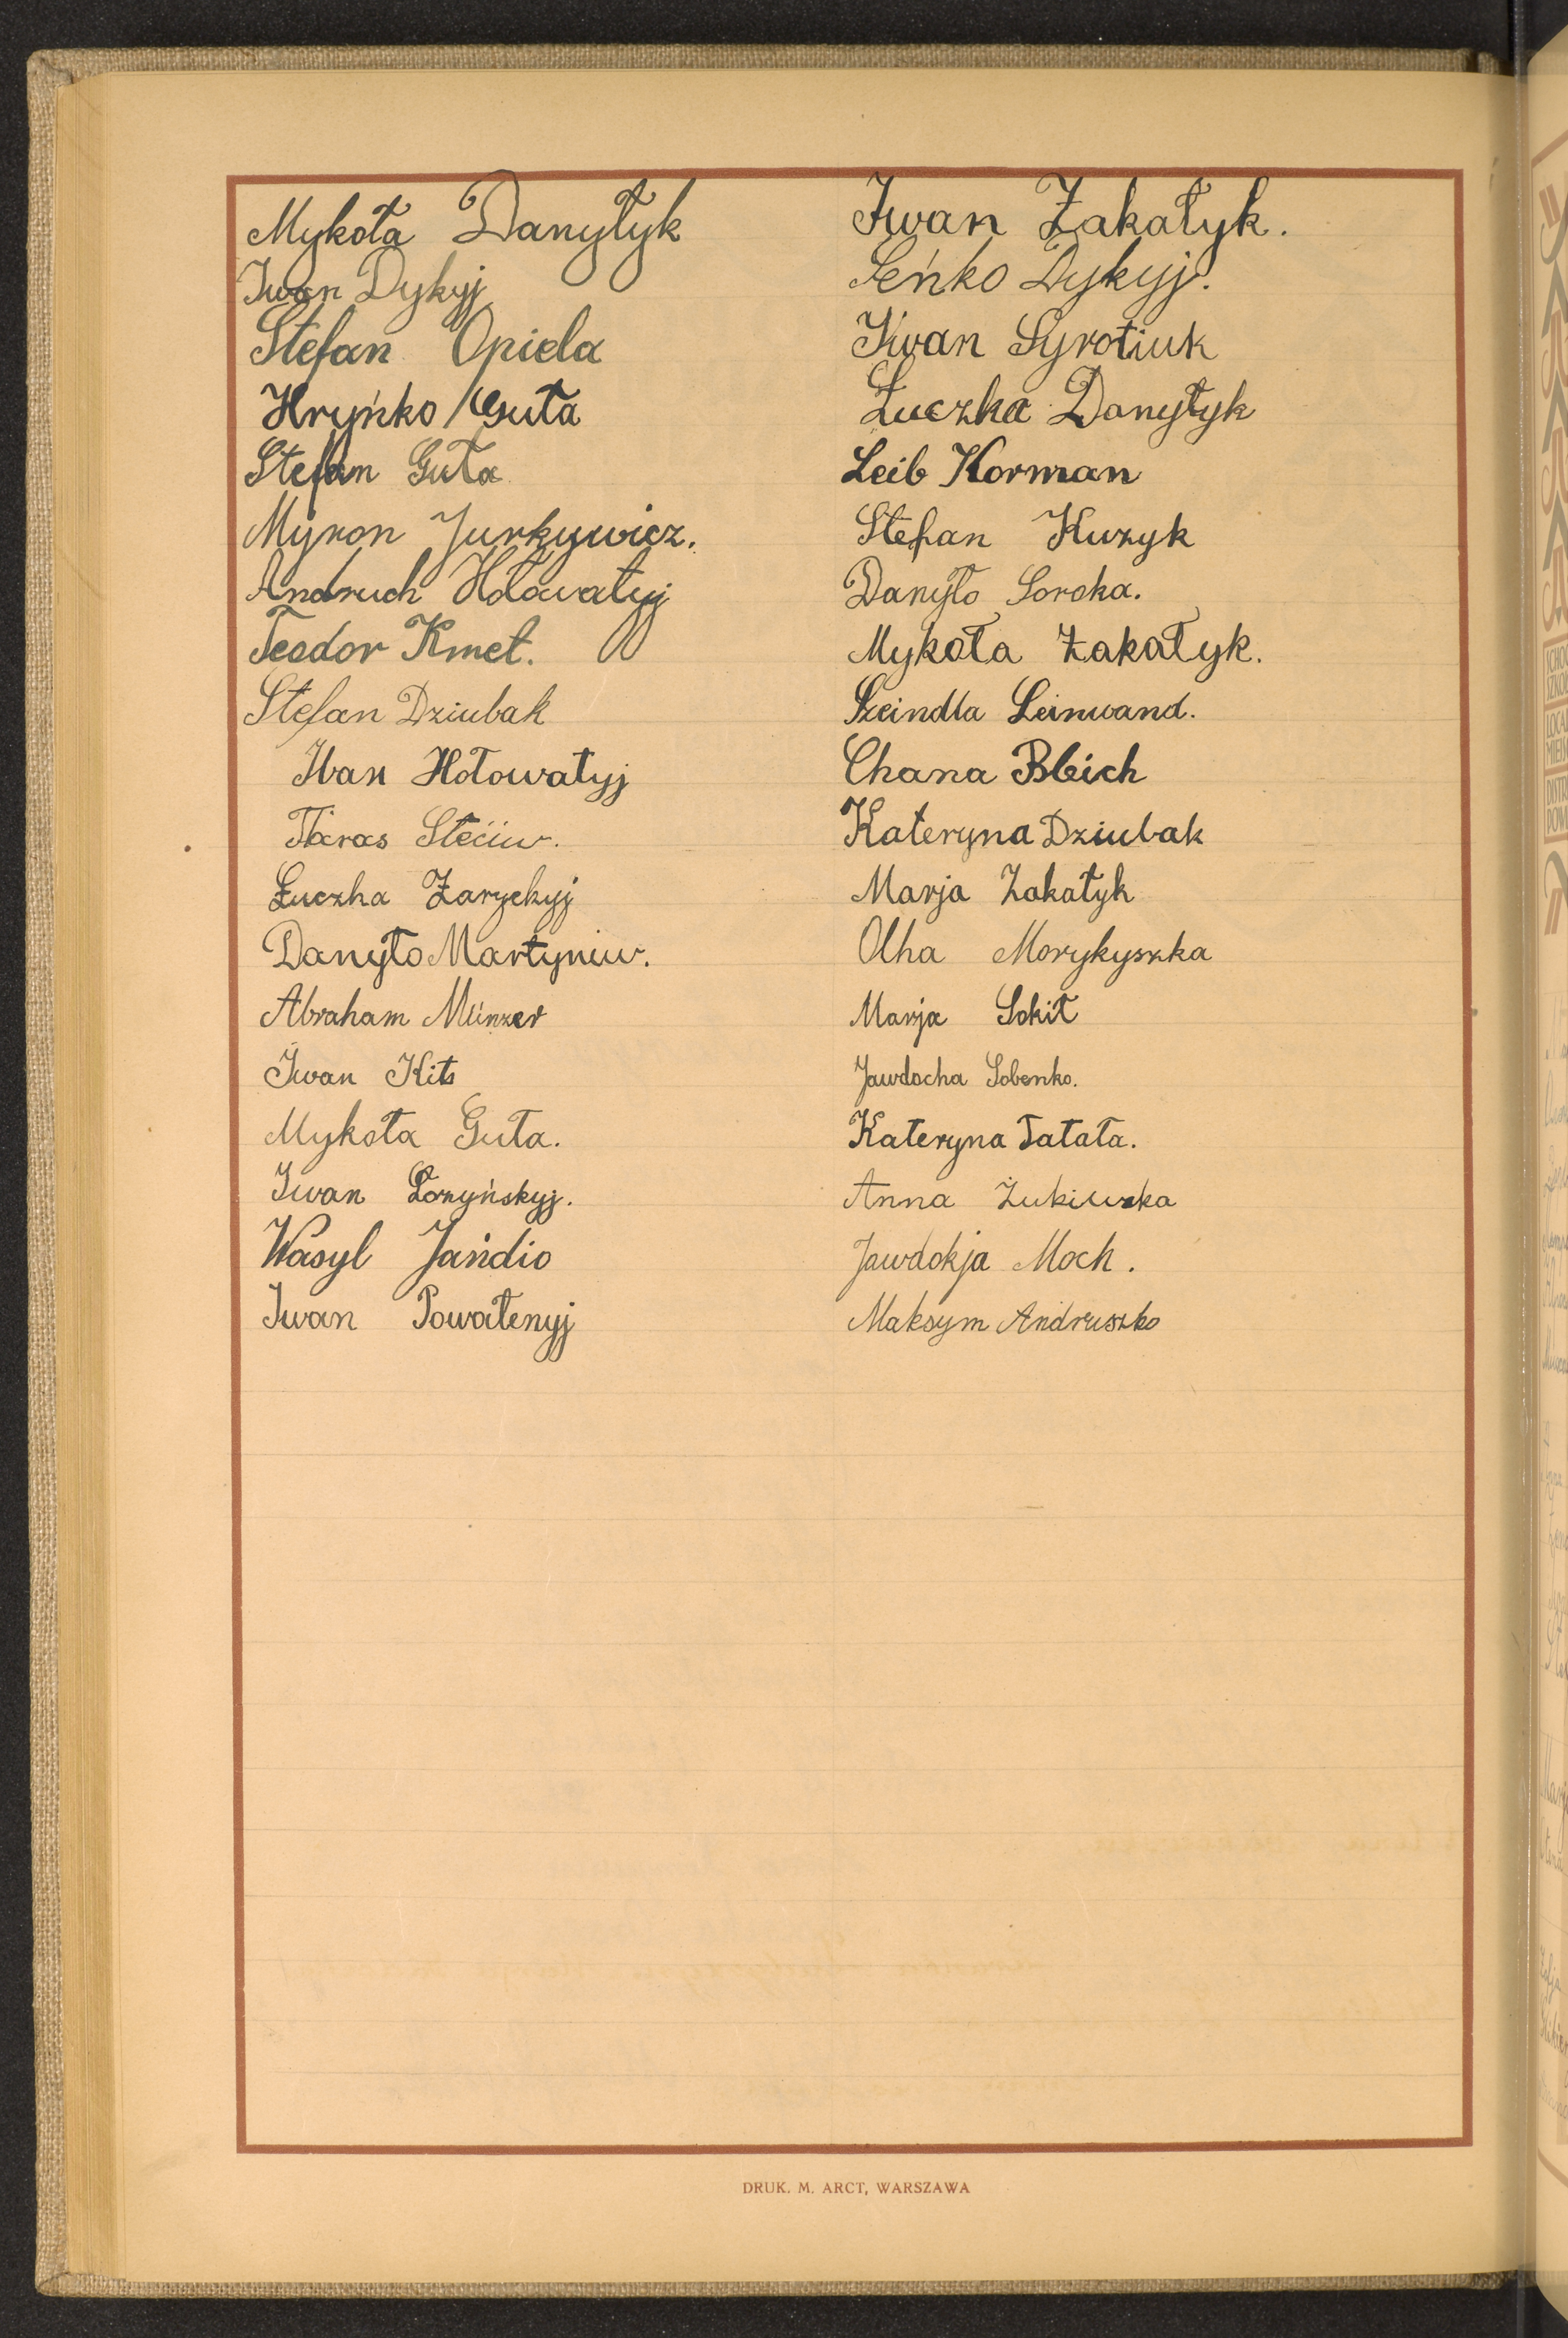 Mykoła Danyłyk
Iwan Dykyj
Stefan Opiela
Hryńko Guła
Stefan Guła
Myron Jurkywicz.
Andruch Hołowatyj
Teodor Kmet.
Stefan Dziubak
Iwan Hołowatyj
Taras Steciw.
Łuczka Zaryckyj
Danyło Martyniw.
Abraham Münzer
Iwan Kits
Mykoła Guła.
Iwan Łozyńskyj.
Wasyl Jańdio
Iwan Powalenyj
Iwan Zakałyk.
Seńko Dykyj.
Iwan Syrotiuk
Łuczka Danyłyk
Leib Korman
Stefan Kuzyk
Danyło Soroka.
Mykoła Zakałyk.
Szeindla Leinwand.
Chana Bleich
Kateryna Dziubak
Marja Zakałyk
Olha Morykyszka
Marja Sokił
Jawdocha Sobenko.
Kateryna Tatała.
Anna Żukiwska
Jawdokja Moch.
Maksym Andruszko
DRUK. M. ARCT, WARSZAWA